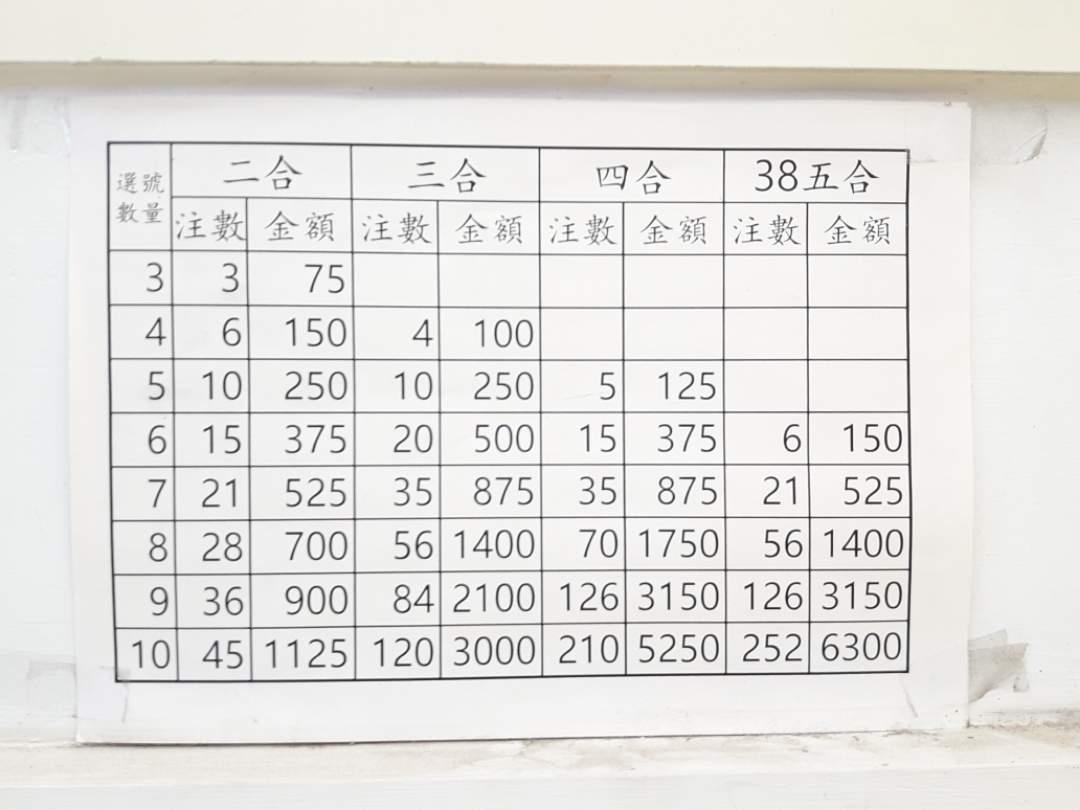 選號數量 二合 三合 四合 38五合
注數 金額 注數 金額 注數 金額 注數 金額
3 3 75
4 6 150 4 100
5 10 250 10 250 5 125
6 15 375 20 500 15 375 6 150
7 21 525 35 875 35 875 21 525
8 28 700 56 1400 70 1750 56 1400
9 36 900 84 2100 126 3150 126 3150
10 45 1125 120 3000 210 5250 252 6300